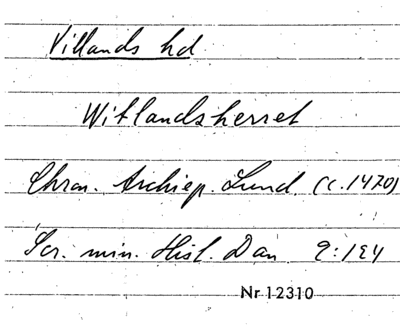 Villands hd
Witlandsherret
Chron. Archiep. Lund. (c. 1470)
Scr. min. Hist. Dan 2:124
Nr 12310